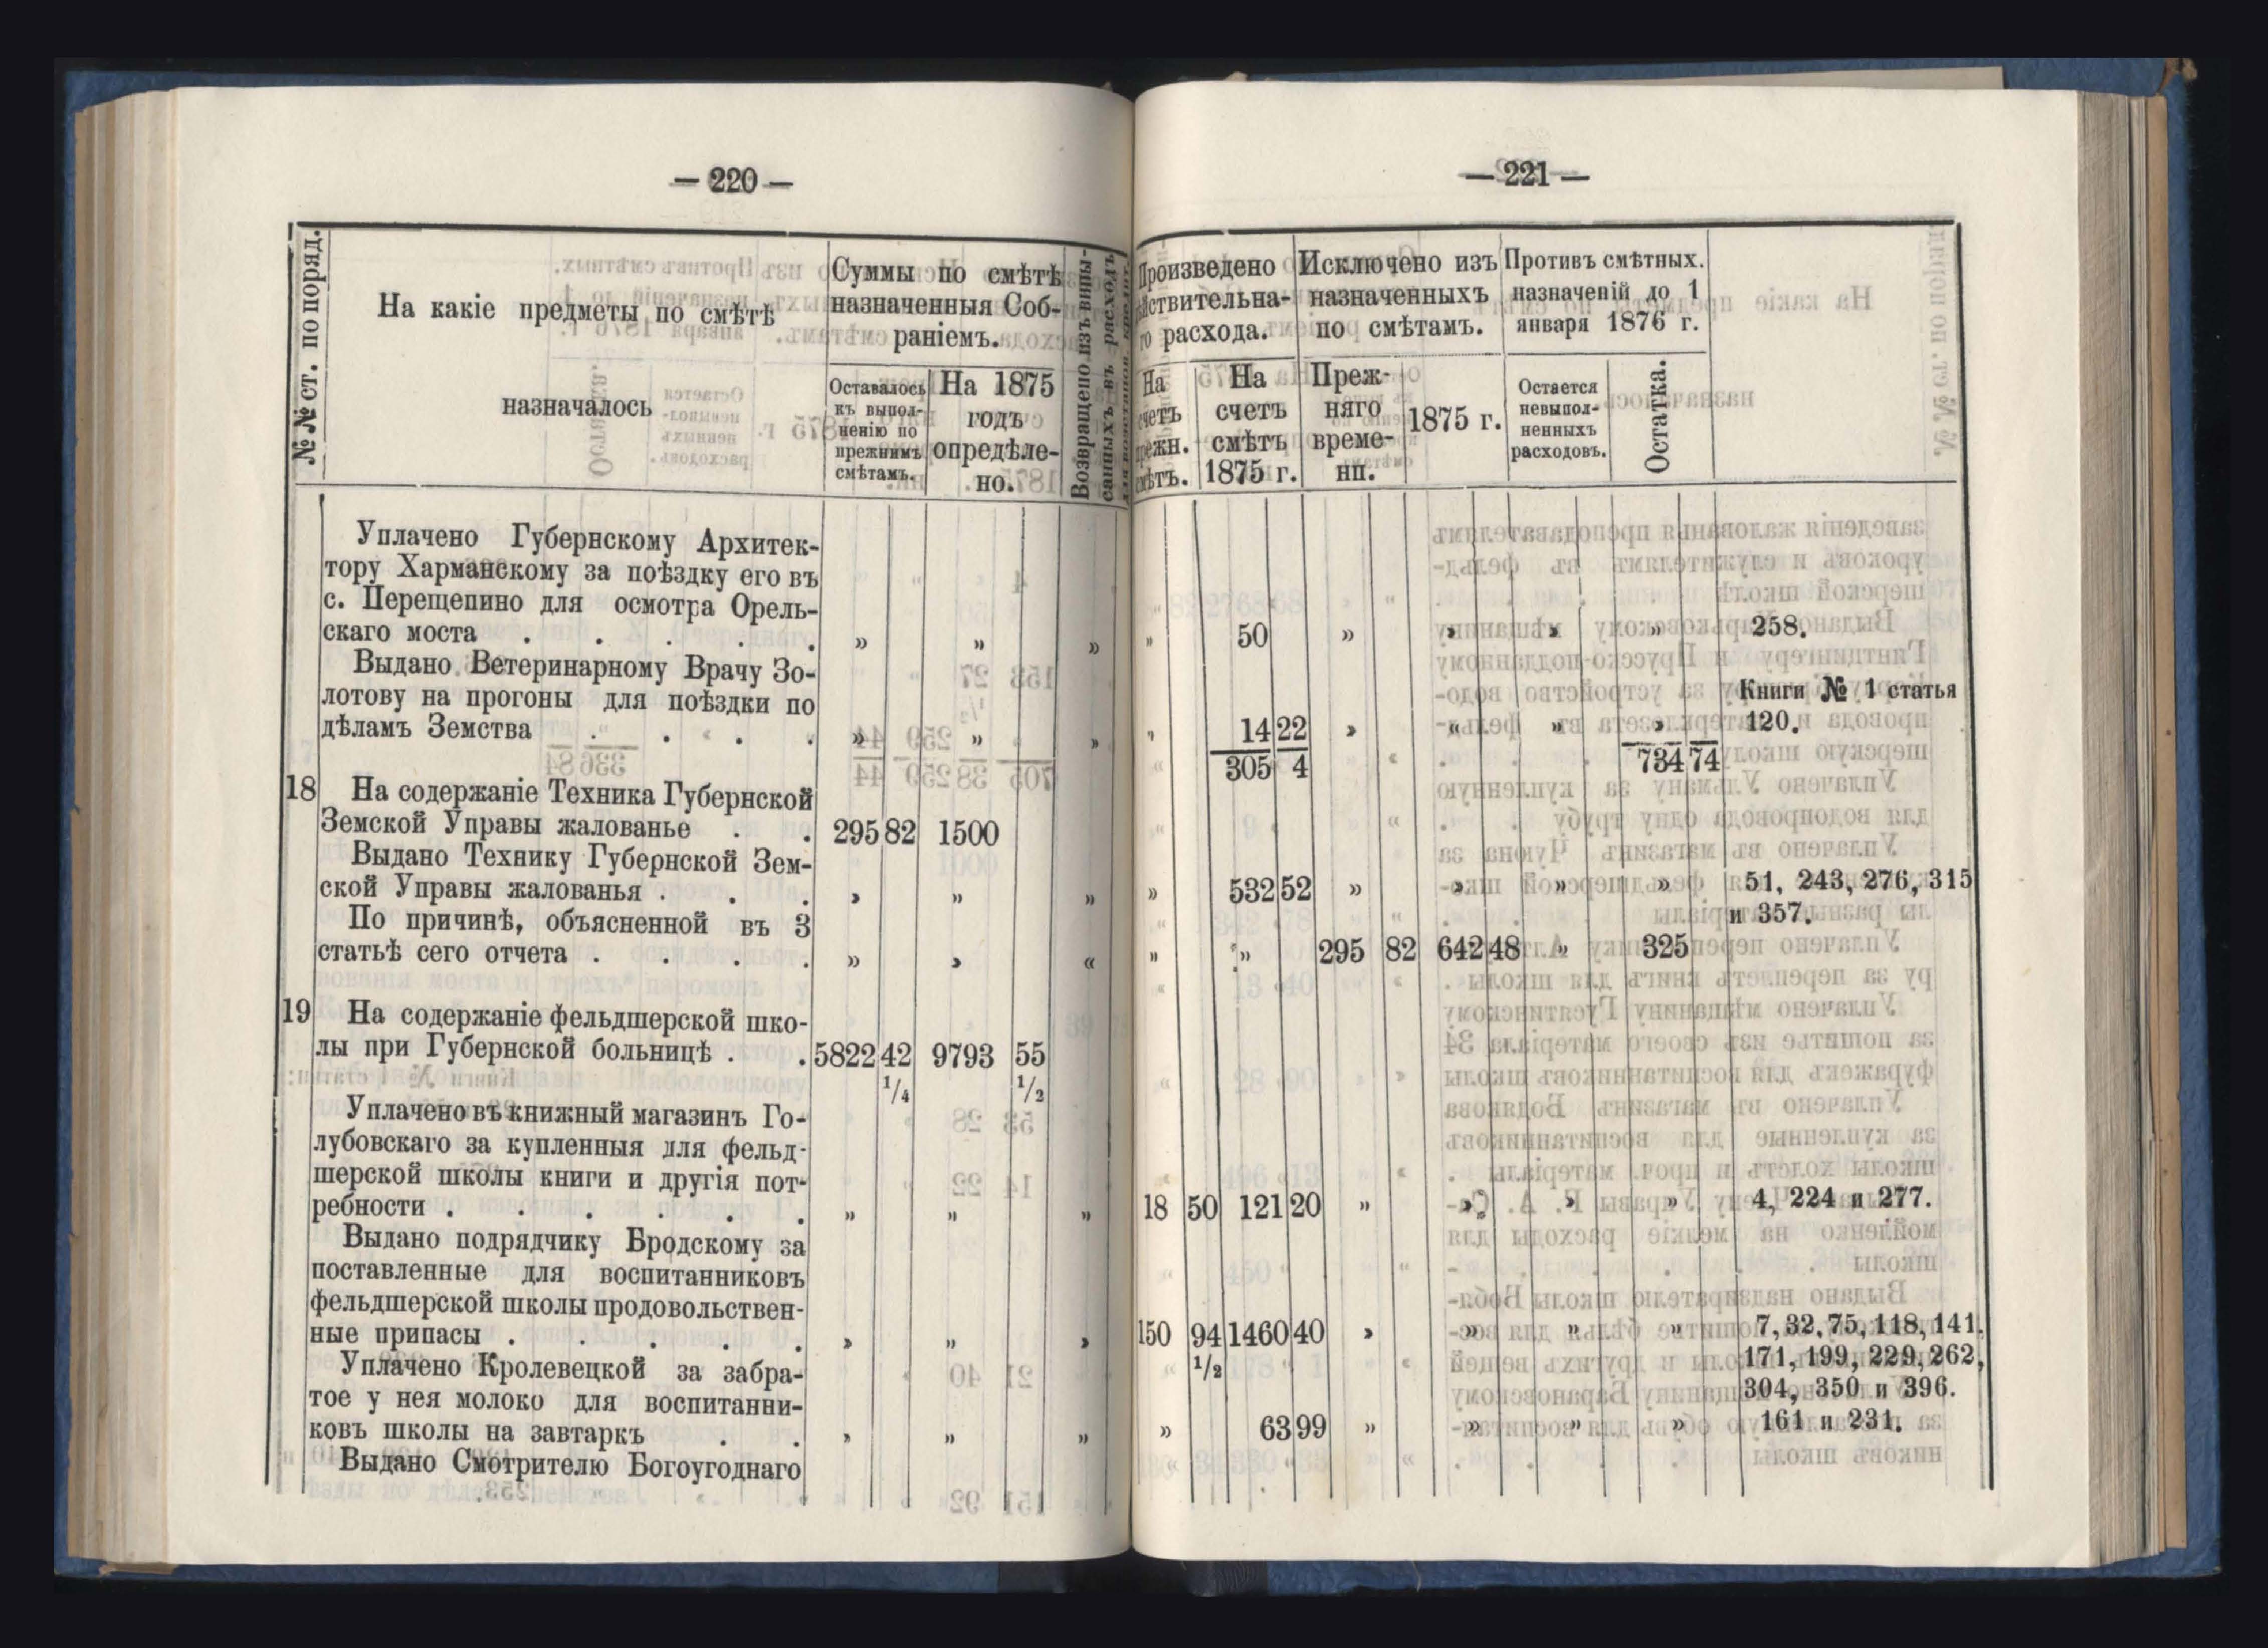 — 220 —
№№ ст. по поряд.
На какіе предметы по смѣтѣ
назначалось
Суммы по смѣтѣ
назначенныя Соб-
раніемъ.
Оставалось
къ выпол-
ненію по
прежнимъ
смѣтамъ.
На 1875
годъ
опредѣле-
но.
Возвращено изъ выпи-
санныхъ въ расходъ
Уплачено Губернскому Архитек-
тору Харманскому за поѣздку его въ
с. Перещепино для осмотра Орель-
скаго моста . . . . . » » »
Выдано Ветеринарному Врачу Зо-
лотову на прогоны для поѣздки по
дѣламъ Земства . . . . » » »
18 На содержаніе Техника Губернской
Земской Управы жалованье . . 295 82 1500
Выдано Технику Губернской Зем-
ской Управы жалованья . . . › » »
По причинѣ, объясненной въ 3
статьѣ сего отчета . . . . » › «
19 На содержаніе фельдшерской шко-
лы при Губернской больницѣ . . 5822 42 9793 55
1/4 1/2
Уплачено въ книжный магазинъ Го-
лубовскаго за купленныя для фельд-
шерской школы книги и другія пот-
ребности . . . . . . » » »
Выдано подрядчику Бродскому за
поставленные для воспитанниковъ
фельдшерской школы продовольствен-
ные припасы . . . . . › » ›
Уплачено Кролевецкой за забра-
тое у нея молоко для воспитанни-
ковъ школы на завтаркъ . . › » »
Выдано Смотрителю Богоугоднаго
— 221 —
Произведено
йствительна-
го расхода.
На
счетъ
режн.
мѣтъ.
На
счетъ
смѣтъ
1875 г.
Исключено изъ
назначенныхъ
по смѣтамъ.
Преж-
няго
време-
ни.
1875 г.
Противъ смѣтныхъ.
назначеній до 1
января 1876 г.
Остается
невыпол-
ненныхъ
расходовъ.
Остатка.
» 50 » › › » 258.
Книги № 1 статья
» 14 22 › » » › 120.
305 4 734 74
» 532 52 » › » » 51, 243, 276, 315
и 357.
» » 295 82 642 48 » 325
18 50 121 20 » » › » 4, 224 и 277.
150 94 1460 40 › » » » 7, 32, 75, 118, 141,
1/2 171, 199, 229, 262,
304, 350 и 396.
» 63 99 » » » » 161 и 231.